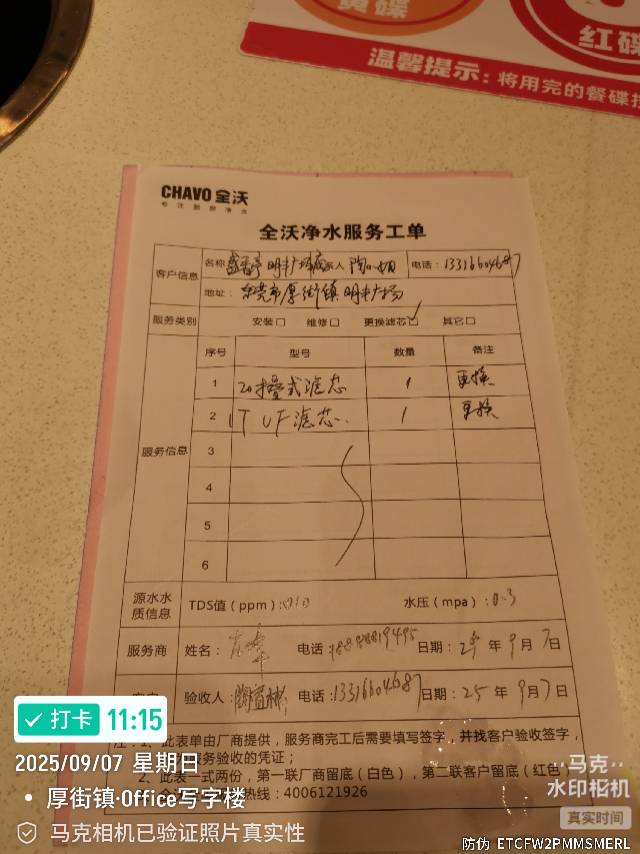 黄碟
红碟
温馨提示：将用完的餐碟按
CHAVO 全沃
专注厨房净水
全沃净水服务工单
客户信息 名称 明丰广场店 联系人 电话：13316604687
地址：东莞市厚街镇明丰广场
服务类别 安装□ 维修□ 更换滤芯☑ 其它□
服务信息 序号 型号 数量 备注
1 20摺叠式滤芯 1 更换
2 1T UF滤芯 1 更换
3
4
5
6
源水水质信息 TDS值（ppm）：010 水压（mpa）：0.3
服务商 姓名： 电话： 日期：25年9月7日
客户 验收人： 电话：13316604687 日期：25年9月7日
注：1、此表单由厂商提供，服务商完工后需要填写签字，并找客户验收签字，
服务验收的凭证；
2、此表一式两份，第一联厂商留底（白色），第二联客户留底（红色）
热线：4006121926
打卡 11:15
2025/09/07 星期日
厚街镇·Office写字楼
马克相机已验证照片真实性
马克
水印相机
真实时间
防伪 ETCFW2PMMSMERL